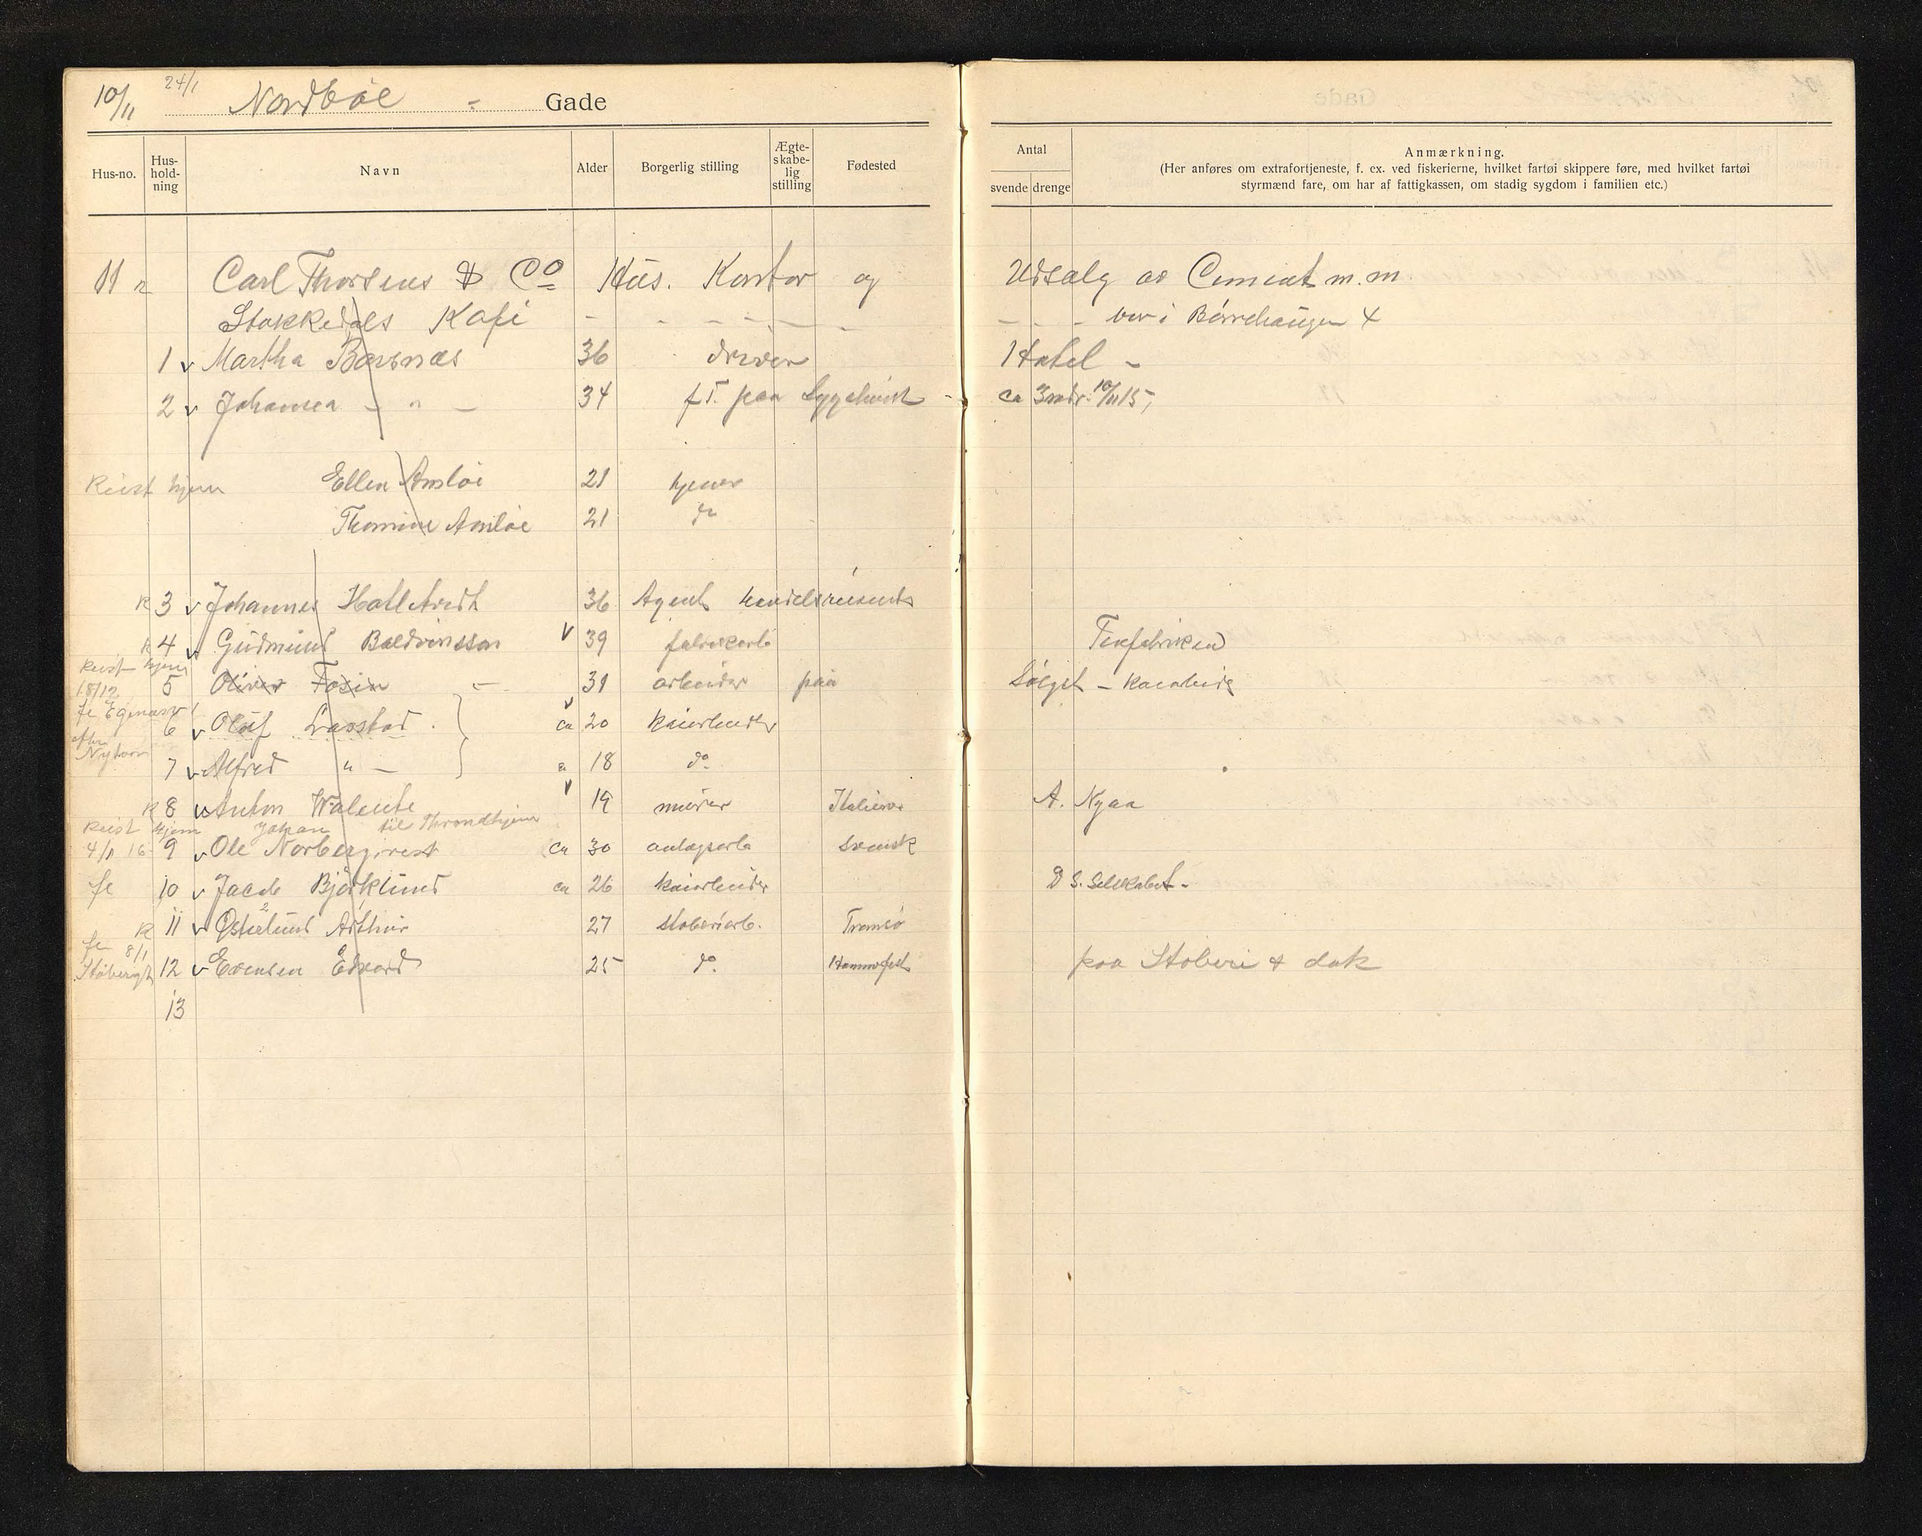 10/11 24/1 Nordbøe - Gade
Hus-no. Hus-hold-ning Navn Alder Borgerlig stilling Ægte-skabe-lig stilling Fødested
Antal svende drenge
Anmærkning.
(Her anføres om extrafortjeneste, f. ex. ved fiskerierne, hvilket fartøi skippere føre, med hvilket fartøi
styrmænd fare, om har af fattigkassen, om stadig sygdom i familien etc.)
11 Carl Thorsens & Co Hus. Kontor og Udsalg av Cement m.m.
Stokkedals Kafe - - - - - - - - i Børrehaugen 4
1 v Martha 36 driver Hotel -
2 v Johanna - " - 34 f.T. paa ca 3 mdr. 10/11 15,
Reist hjem Ellen Amlöe 21 tjener
Thomine Amlöe 21 do
R 3 v Johannes 36 Agent handelsreisende
R 4 v Gudmund Baldvinsson v 39 fabrikarb Tinfabriken
Reist hjem
18/12 5 Oliver Fosen - 31 arbeider paa
fl Egenæsv
6 v Oluf ca 20 kaiarbeider
Nytorv
7 v Alfred " - 18 do
R 8 v Anton Walente v 19 murer Italiener A. Nyaa
Reist hjem Johan til Throndhjem
4/1 16 9 v Ole Norbergqvest ca 30 anlægsarb Svensk
fl 10 v Jacob Björklund ca 26 kaiarbeider D S. Selskabet -
R 11 v Østerlund Arthur 27 støberiarb. Tromsö
fl 8/1
12 v Evensen Edvard 25 do Hammerfest paa Støberi & dok
13